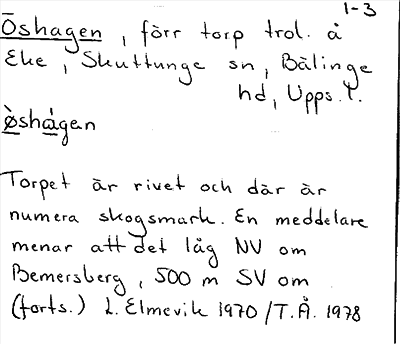 1-3
Öshagen, förr torp trol. å
Eke, Skuttunge sn, Bälinge
hd, Upps. l.
ö̀shágen
Torpet är rivet och där är
numera skogsmark. En meddelare
menar att det låg NV om
Bemersberg, 500 m SV om
(forts.) L. Elmevik 1970/T.Å. 1978